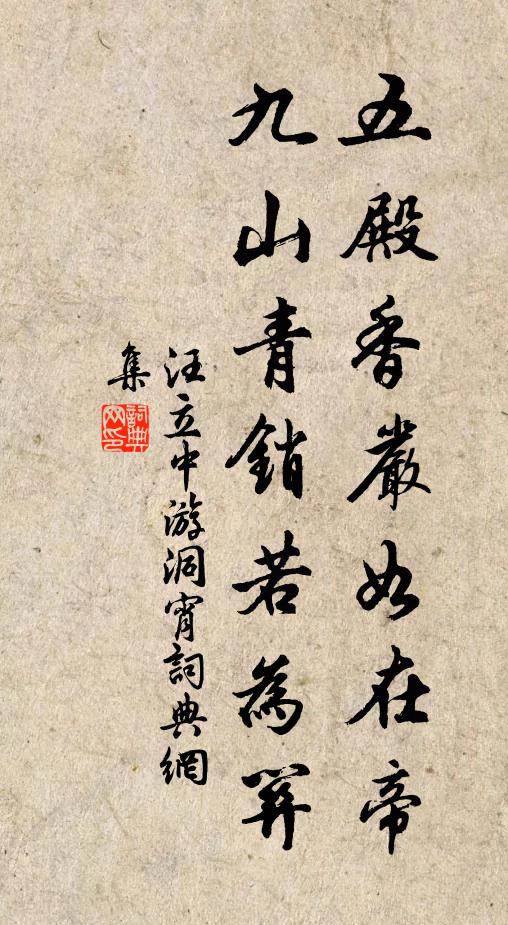 五殿香嚴如在帝
九山青銷若為關
汪立中游洞宵詞典網
集
詞典網印